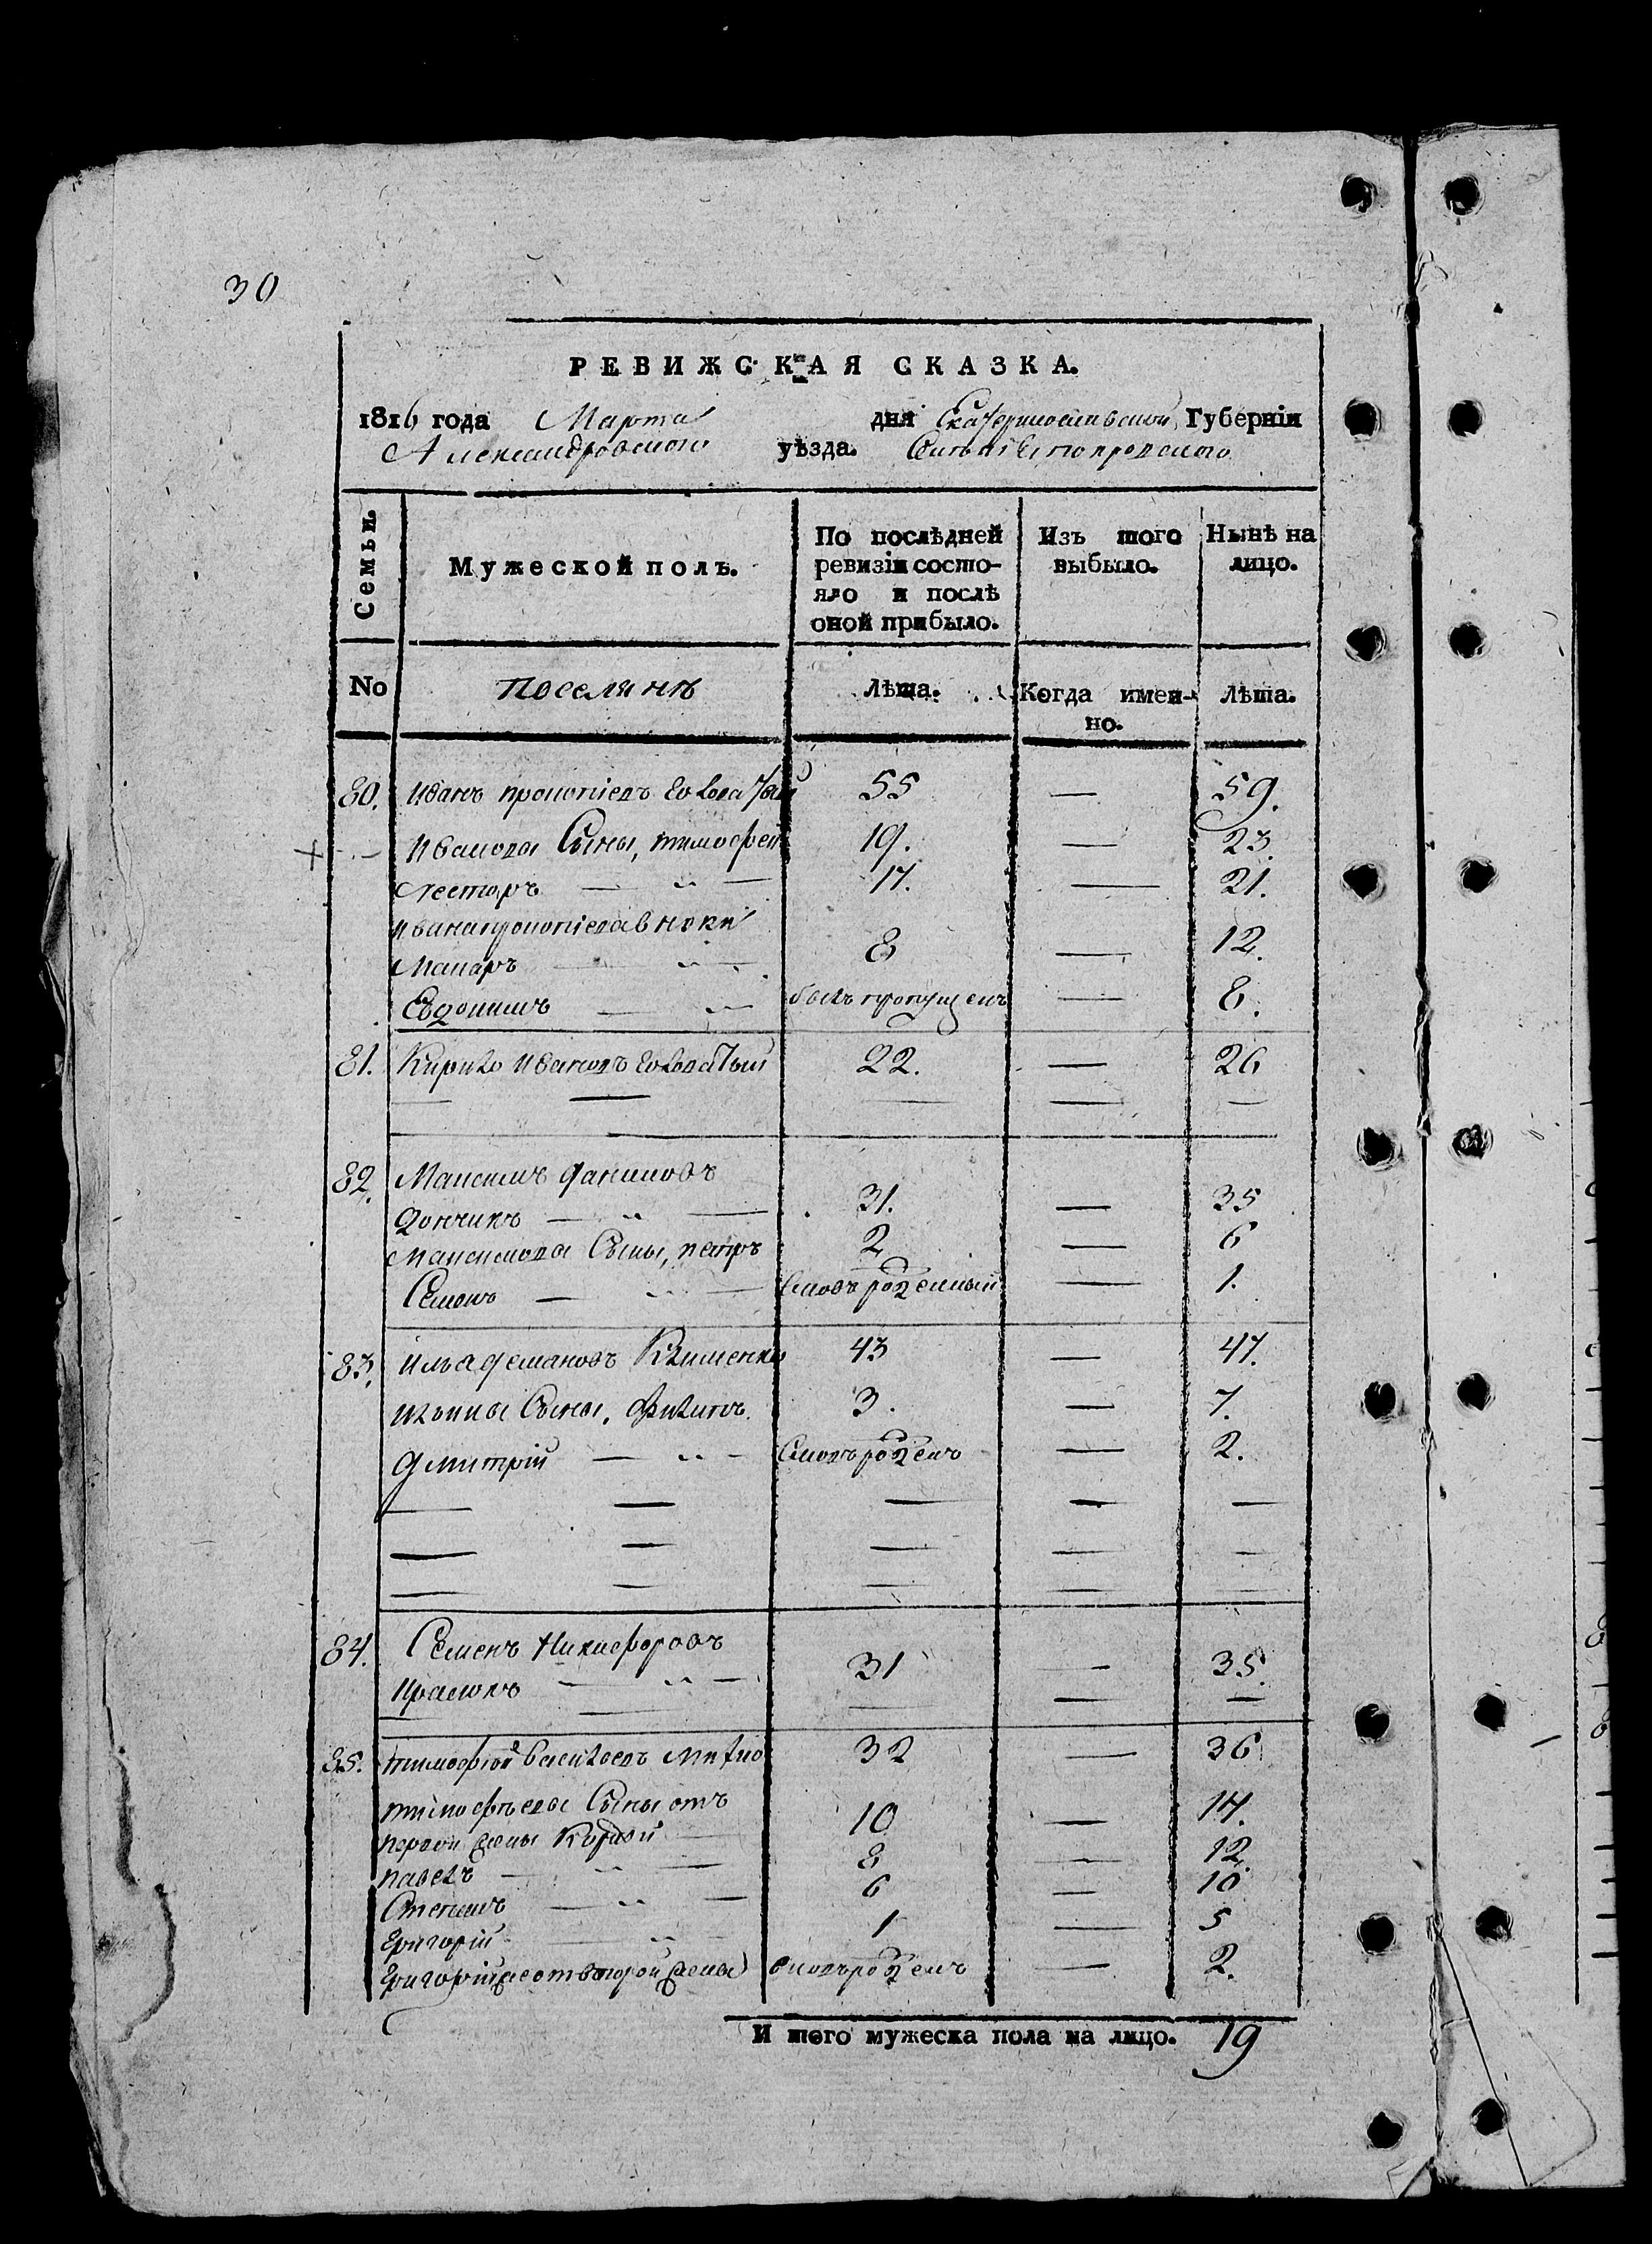 30
РЕВИЖСКАЯ СКАЗКА.
1816 года Марта дня Екатеринославской Губерніи
Александровского уѣзда.
Семьи.
Мужеской полъ.
По послѣдней ревизіи состояло и послѣ оной прибыло.
Изъ того выбыло.
Нынѣ на лицо.
No
поселянъ
Лѣта.
Когда именно.
Лѣта.
80. иванъ прокопіевъ Головатый 55 — 59.
ивановы Сыны, тимофей 19. — 23.
Несторъ — 17. — 21.
ивана прокопіева внуки
Макаръ — 8 — 12.
Евдокимъ — былъ пропущенъ — 8.
81. Кирило ивановъ Головатый 22. — 26
82. Максимъ даниловъ
дончикъ — 31. — 35
максимовы Сыны, петръ 2 — 6
Семенъ — вновь рожденный — 1.
83. илья демяновъ Клименко 43 — 47.
ильины Сыны, Филипъ. 3. — 7.
дмитрій — вновь рожденъ — 2.
84. Семенъ Никифоровъ
31 — 35.
85. тимофей васильевъ 32 — 36
тимофѣевы Сыны отъ
первой жены Корней 10 — 14.
павелъ — 8 — 12.
Степанъ — 6 — 10
григорій — 1 — 5
григорій же от второй жены вновь рожденъ — 2.
И того мужеска пола на лицо. 19